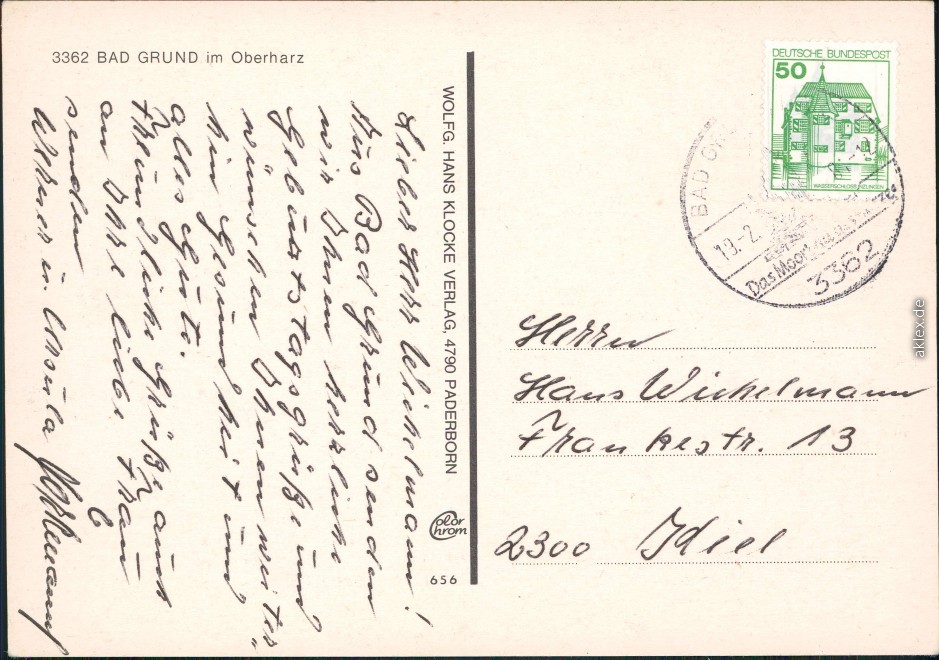 3362 BAD GRUND im Oberharz
Lieber Herr Wickelmann!
Aus Bad Grund senden
wir Ihnen herzliche
Geburtstagsgrüße und
wünschen Ihnen weiter-
hin Gesundheit und
alles Gute.
Freundliche Grüße auch
an Ihre liebe Frau
senden
Werner u. Ursula
WOLFG. HANS KLOCKE VERLAG, 4790 PADERBORN
Color
Chrom
656
DEUTSCHE BUNDESPOST
50
WASSERSCHLOSS INZLINGEN
BAD
19.-2.
Das Moorheilbad
3362
Herrn
Hans Wickelmann
Frankestr. 13
2300 Kiel
aklex.de